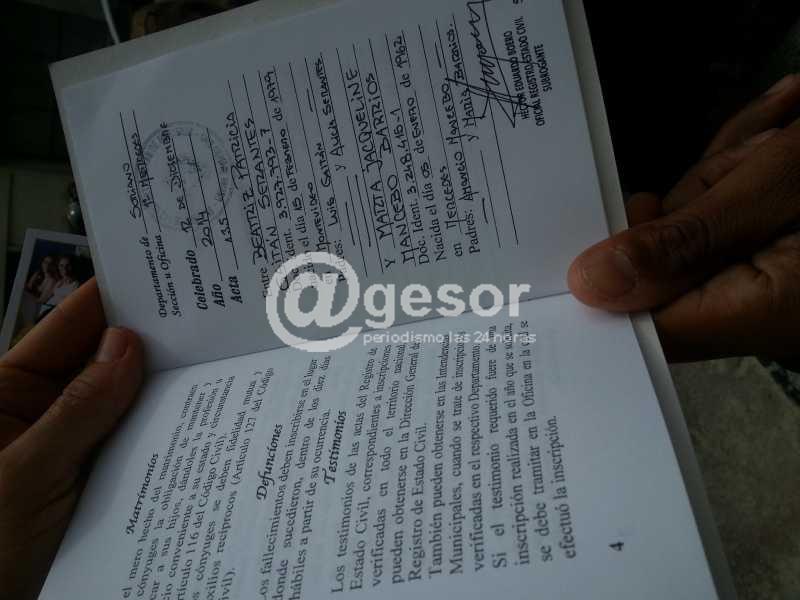 Departamento de SORIANO
Sección u Oficina 1ª MERCEDES
Celebrado 12 DE DICIEMBRE
Año 2014
Acta 135
Entre BEATRIZ PATRICIA
GAITAN SERANTES
Ident. 3.977.793-7
el día 15 de FEBRERO de 1979
MONTEVIDEO
Padres: LUIS GAITÁN
y ALICIA SERANTES
Y MARIA JACQUELINE
MANCEBO BARRIOS
Doc. Ident. 3.248.416-1
Nacida el día 05 de ENERO de 1962
en MERCEDES
Padres: AMANCIO MANCEBO
y MARIA BARRIOS
HECTOR EDUARDO BOERO
OFICIAL REGISTRO ESTADO CIVIL
SUBROGANTE
5
@gesor
periodismo las 24 horas
Matrimonios
el mero hecho del matrimonio, contraen
cónyuges la obligación de mantener y
car a sus hijos, dándoles la profesión u
cio conveniente a su estado y circunstancia
rtículo 116 del Código Civil).
s cónyuges se deben fidelidad mutua y
xilios recíprocos (Artículo 127 del Código
ivil).
Defunciones
os fallecimientos deben inscribirse en el lugar
donde sucedieron, dentro de los diez días
hábiles a partir de su ocurrencia.
Testimonios
Los testimonios de las actas del Registro de
Estado Civil, correspondientes a inscripciones
verificadas en todo el territorio nacional,
pueden obtenerse en la Dirección General de
Registro de Estado Civil.
También pueden obtenerse en las Intendencias
Municipales, cuando se trate de inscripciones
verificadas en el respectivo Departamento.
Si el testimonio requerido fuere de una
inscripción realizada en el año que se solicita,
se debe tramitar en la Oficina en la cual se
efectuó la inscripción.
4